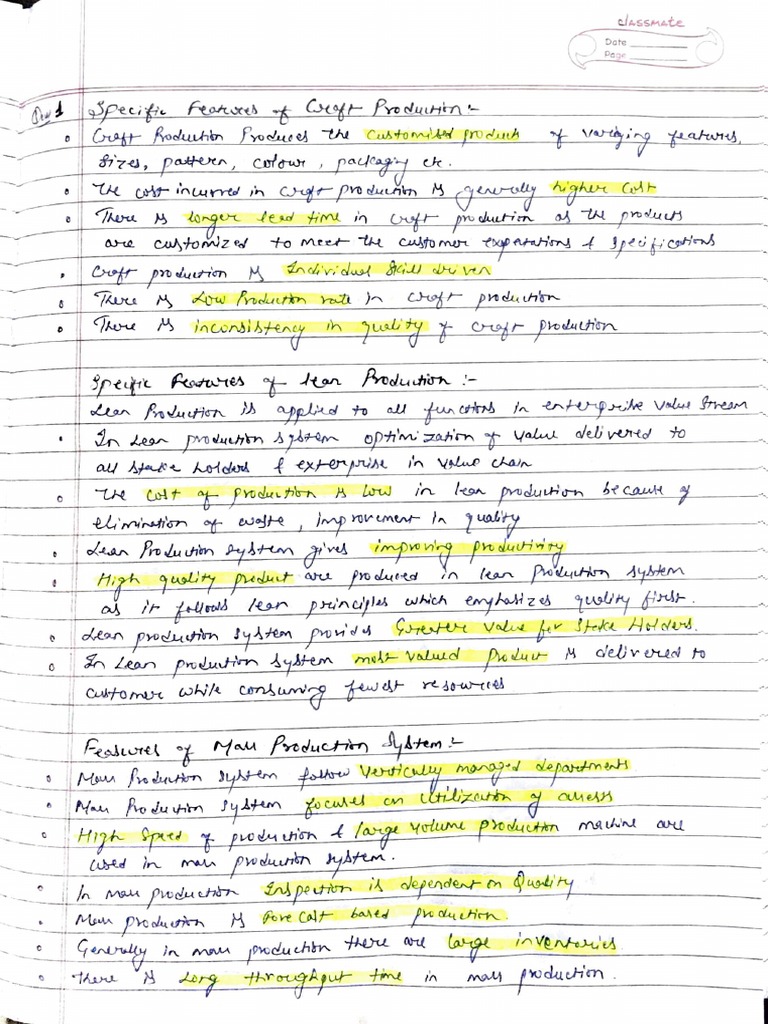 classmate
Date
Page
Specific Features of Craft Production :-
Craft Production Produces the customised products of varying features,
sizes, pattern, colour, packaging etc.
The cost incurred in craft production is generally higher cost
There is longer lead time in craft production as the products
are customized to meet the customer expectations & specifications
Craft production is Individual skill driven
There is Low Production rate in craft production
There is inconsistency in quality of craft production
Specific Features of lean Production :-
Lean Production is applied to all functions in enterprise value stream
In Lean production system optimization of value delivered to
all stake holders & exterprise in value chain
The cost of production is low in lean production because of
elimination of waste, improvement in quality
Lean Production system gives improving productivity
High quality product are produced in lean Production system
as it follows lean principles which emphasizes quality first.
Lean production system provides Greater value for Stake Holders.
In Lean production system most valued Product is delivered to
customer while consuming fewest resources
Features of Mass Production System :-
Mass Production system follow vertically managed departments
Mass Production system focuses on Utilization of assess
High Speed of production & large volume production machine are
used in mass production system.
In mass production Inspection is dependent on Quality
Mass production is Forecast based production.
Generally in mass production there are large inventories
There is Long throughput time in mass production.